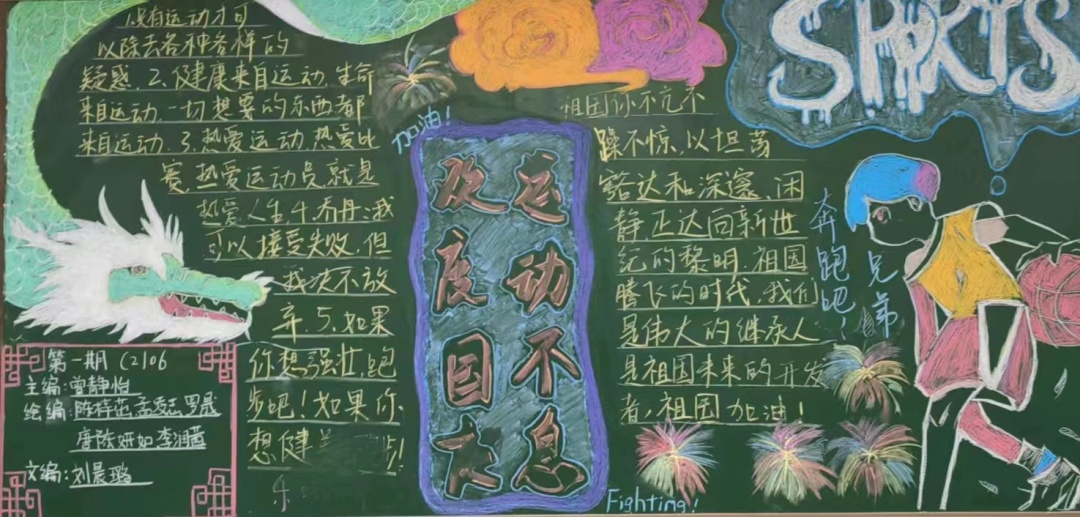 没有运动才可
以除去各种各样的
疑惑.2.健康来自运动.生命
来自运动.一切想要的东西都
来自运动.3.热爱运动.热爱比
赛,热爱运动员就是
热爱人生4.乔丹:我
可以接受失败.但
我决不放
弃.5.如果
你想强壮,跑
步吧!如果你
想健
加油!
运动不息
欢度国庆
祖国你不亢不
躁不惊,以坦荡
豁达和深邃、闲
静,正达向新世
纪的黎明.祖国
腾飞的时代,我们
是伟大的继承人
是祖国未来的开发
者,祖国加油!
Fighting!
SPORTS
奔跑吧,
兄弟
第一期 C2106
主编:曾静怡
绘编:陈梓芷,孟
唐陈妍如 李润
文编:刘晨璐